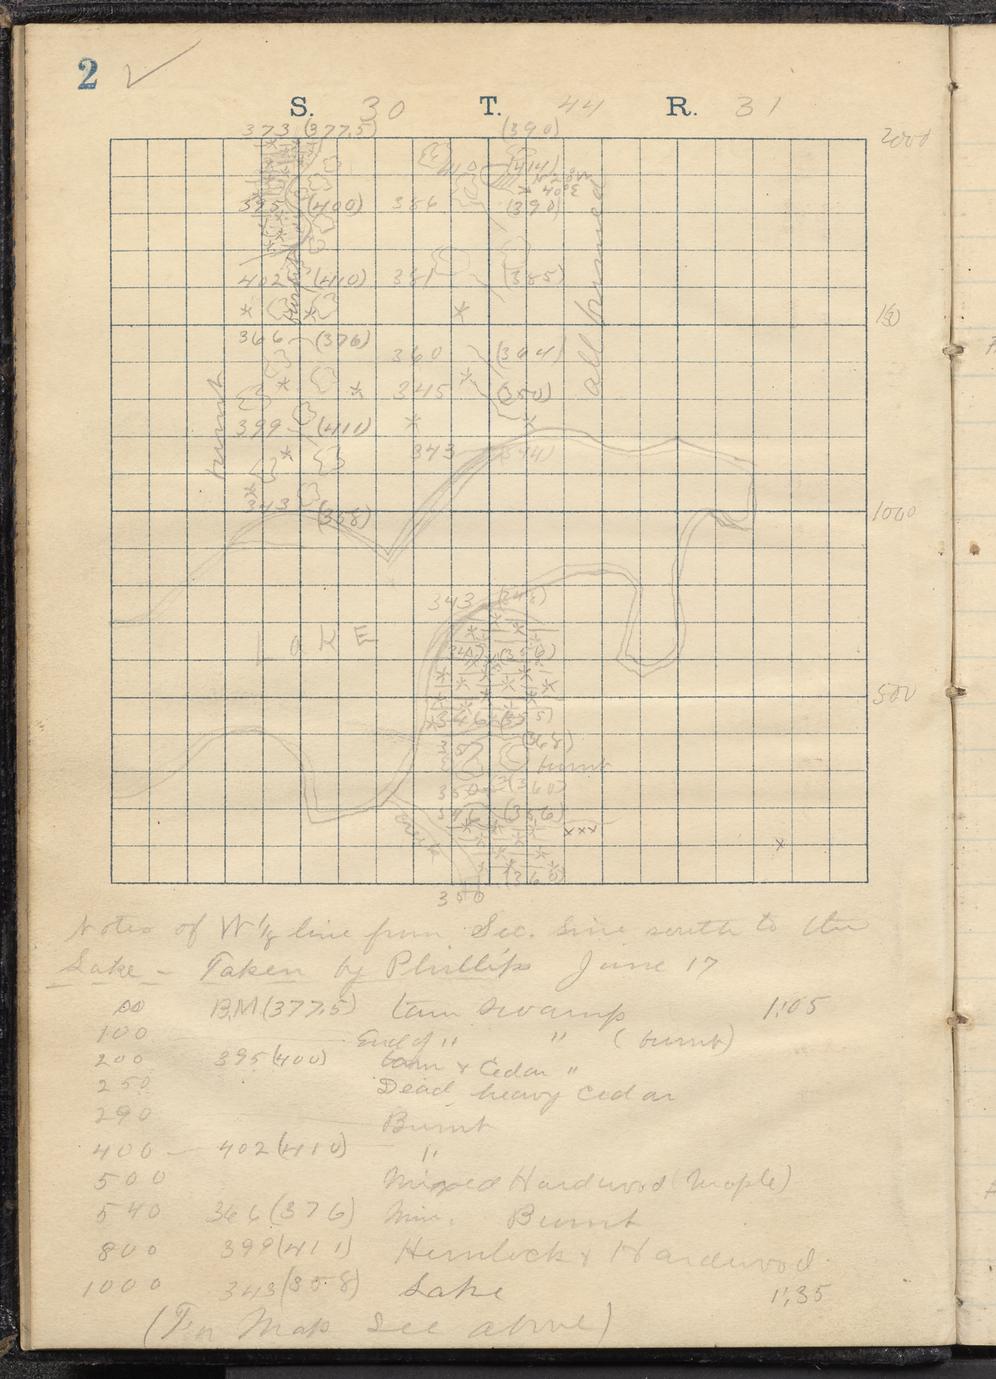 2 ✓
S. 30 T. 44 R. 31
373 (377.5) (390) 2000
(414)
N 20 W
40°E
395 (400) 386 (390)
402 (410) 381 (385)
burnt
all burned
366 (376)
360 (364)
345 (350)
burnt
399 (411)
343 (344)
343 (358) 1000
343
LAKE
(356)
500
346 (355)
357 (368)
burnt
350 (360)
346 (356)
xxx
x
creek
(360)
350
Notes of W 1/8 line from Sec. line south to the
Lake - Taken by Phillips June 17
00 B.M. (377.5) tam swamp 1:05
100 End of " " (burnt)
200 395 (400) tam & Cedar "
250 Dead heavy cedar
290 Burnt
400 - 402 (410) "
500 Mixed Hardwood (Maple)
540 366 (376) Min. Burnt
800 399 (411) Hemlock & Hardwood.
1000 343 (358) Lake 1:35
(For Map See above)